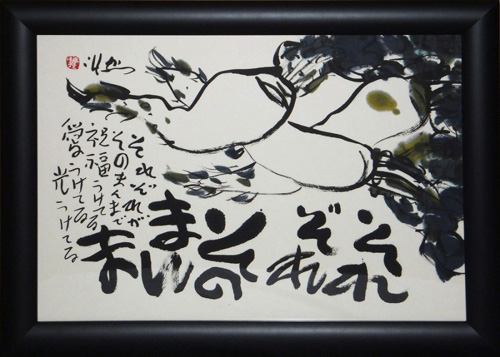 それ
ぞれの
その
まん
ま
それぞれが
そのまんまで
祝福うけてる
愛うけてる
光うけてる